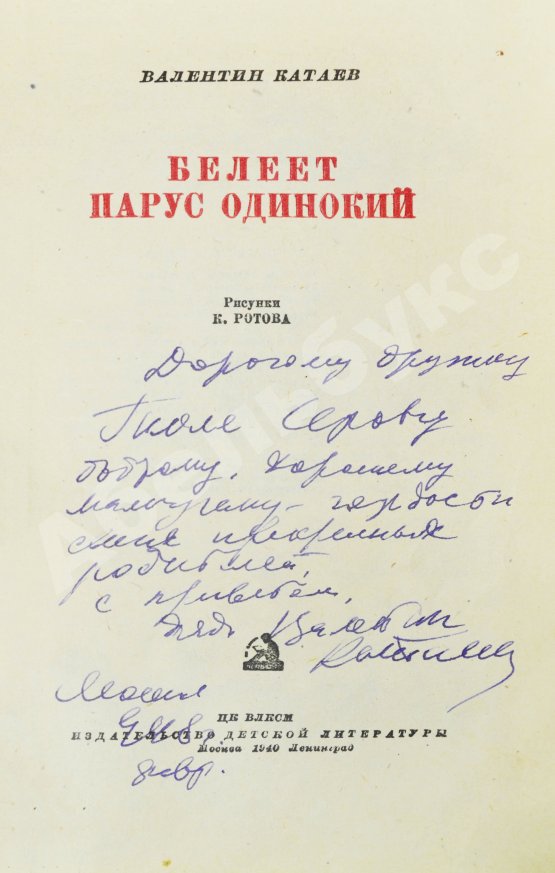 ВАЛЕНТИН КАТАЕВ
БЕЛЕЕТ
ПАРУС ОДИНОКИЙ
Рисунки
К. РОТОВА
Дорогому дружку
Толе Серову
доброму, хорошему
мальчугану – гордости
своих прекрасных
родителей,
с приветом,
дядя Валентин
Катаев
Москва
ЦК ВЛКСМ
ИЗДАТЕЛЬСТВО ДЕТСКОЙ ЛИТЕРАТУРЫ
Москва 1940 Ленинград
янвр.
АдельБукс